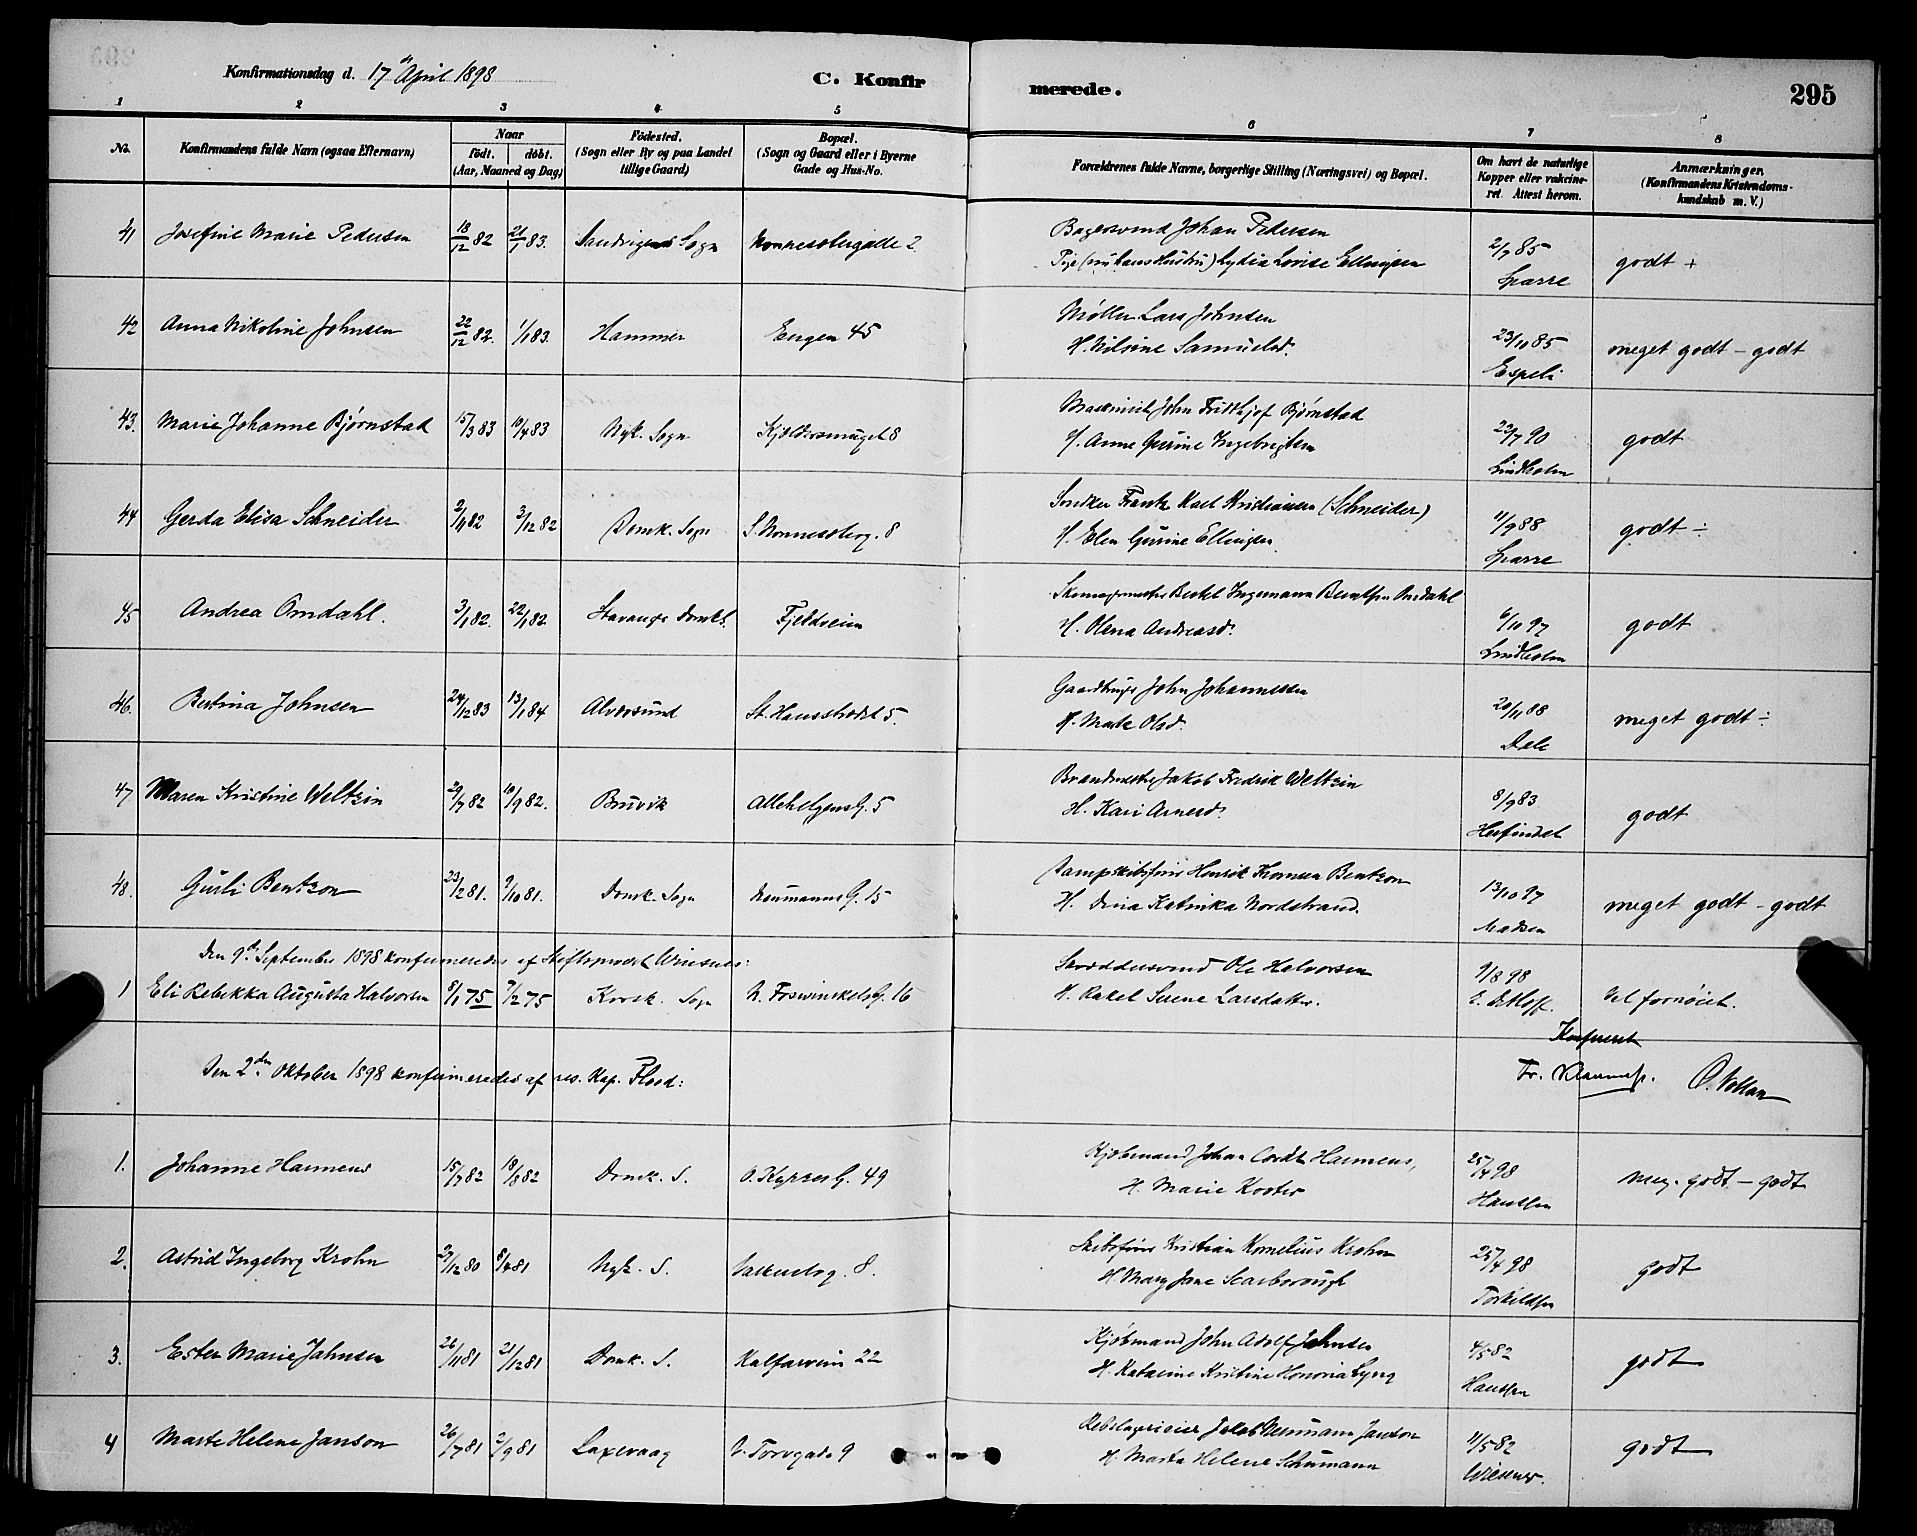 Konfirmationsdag d. 17de April 1898
C. Konfirmerede.
295
1 2 3 4 5 6 7 8
No.
Konfirmandens fulde Navn (ogsaa Efternavn)
Naar
födt. döbt.
(Aar, Maaned og Dag)
Födested.
(Sogn eller By og paa Landet
tillige Gaard)
Bopæl.
(Sogn og Gaard eller i Byerne
Gade og Hus-No.
Forældrenes fulde Navne, borgerlige Stilling (Næringsvei) og Bopæl.
Om havt de naturlige
Kopper eller vakcine-
ret. Attest herom.
Anmærkninger.
(Konfirmandens Kristendoms-
kundskab m. V.)
41 Josefine Marie Pedersen 18/12 82 21/1 83. Sandvigens Sogn Nonnesetergade 2
Bagersvend Johan Pedersen
Pige (nu hans Hustru) Lydia Lovise Ellingsen
2/7 85
Sparre
godt +
42 Anna Nikoline Johnsen 22/12 82. 1/1 83. Hammer Engen 45
Møller Lars Johnsen
H. Nilsine Samuelsd.
23/10 85
Espeli
meget godt - godt
43. Marie Johanne Bjørnstad 15/3 83 10/4 83 Nyk. Sogn Kjeldersmuget 8
Maskinist John Fridthjof Bjørnstad
H. Anne Gurine Ingebrigtsen
22/7 90
Lindholm
godt
44 Gerda Elisa Schneider 2/11 82 3/12 82 Domk. Sogn S. Nonneseterg. 8
Snedker Frantz Karl Kristiansen (Schneider)
H. Elen Gurine Ellingsen
11/9 88
Sparre
godt ÷
45 Andrea Omdahl. 3/1 82. 22/1 82 Stavanger Domk. Fjeldveien
Skomagermester Bertel Ingemann Berntsen Omdahl
H. Olena Andreasd.
6/10 97
Lindholm
godt
46. Bertina Johnsen 24/12 83 13/1 84 Alversund St. Hansstrædet 5.
Gaardbruger John Johannesen
H. Marte Olsd.
20/11 88
Dale
meget godt ÷
47 Maren Kristine Weltzin 29/7 82 10/9 82. Bruvik Allehelgens G. 5
Brandmester Jakob Fredrik Weltzin
H. Kari Arnesd.
8/9 83
Herfindal
godt
48. Gurli Bentzon 23/2 81. 9/10 81. Domk. Sogn Neumanns G. 15
Dampskibsfører Henrik Thomsen Bentzon
H. Dina Katinka Nordstrand
13/10 97
Madsen
meget godt - godt
Den 9de September 1898 konfirmeredes af Stiftsprovst Wiesner:
1 Eli Rebekka Augusta Halvorsen 8/1 75 7/2 75 Korsk. Sogn N. Forswinckels G. 16
Skræddersvend Ole Halvorsen
H. Rakel Serene Larsdatter.
9/8 98
Vel fornøiet.
Konfereret
O. Vollan
Den 2den Oktober 1898 konfirmeredes af res. Kap. Flood:
1. Johanne Harmens 15/7 82 18/8 82 Domk. S. O. Kyrres G. 49
Kjøbmand Johan Cordt Harmens,
H. Marie Koster
25/4 98
Hanssen
meg. godt - godt
2. Astrid Ingeborg Krohn 27/12 80 8/4 81 Nyk. S. Valkendorfsg. 8.
Skibsfører Kristian Kornelius Krohn
H. Mary Jane Scarborough
25/4 98
Torkildsen
godt
3. Ester Marie Jahnsen 26/11 81 21/12 81 Domk. S. Kalfarveien 22
Kjøbmand John Adolf Jahnsen
H. Katarine Kristine Honoria Lyng
4/5 82
Hanssen
godt
4 Marte Helene Janson 26/7 81 2/9 81 Laxevaag N. Torvgade 9
Rebslagerieier Jakob Neumann Janson
H. Marta Helene Schumann
11/5 82
Wiesener.
godt